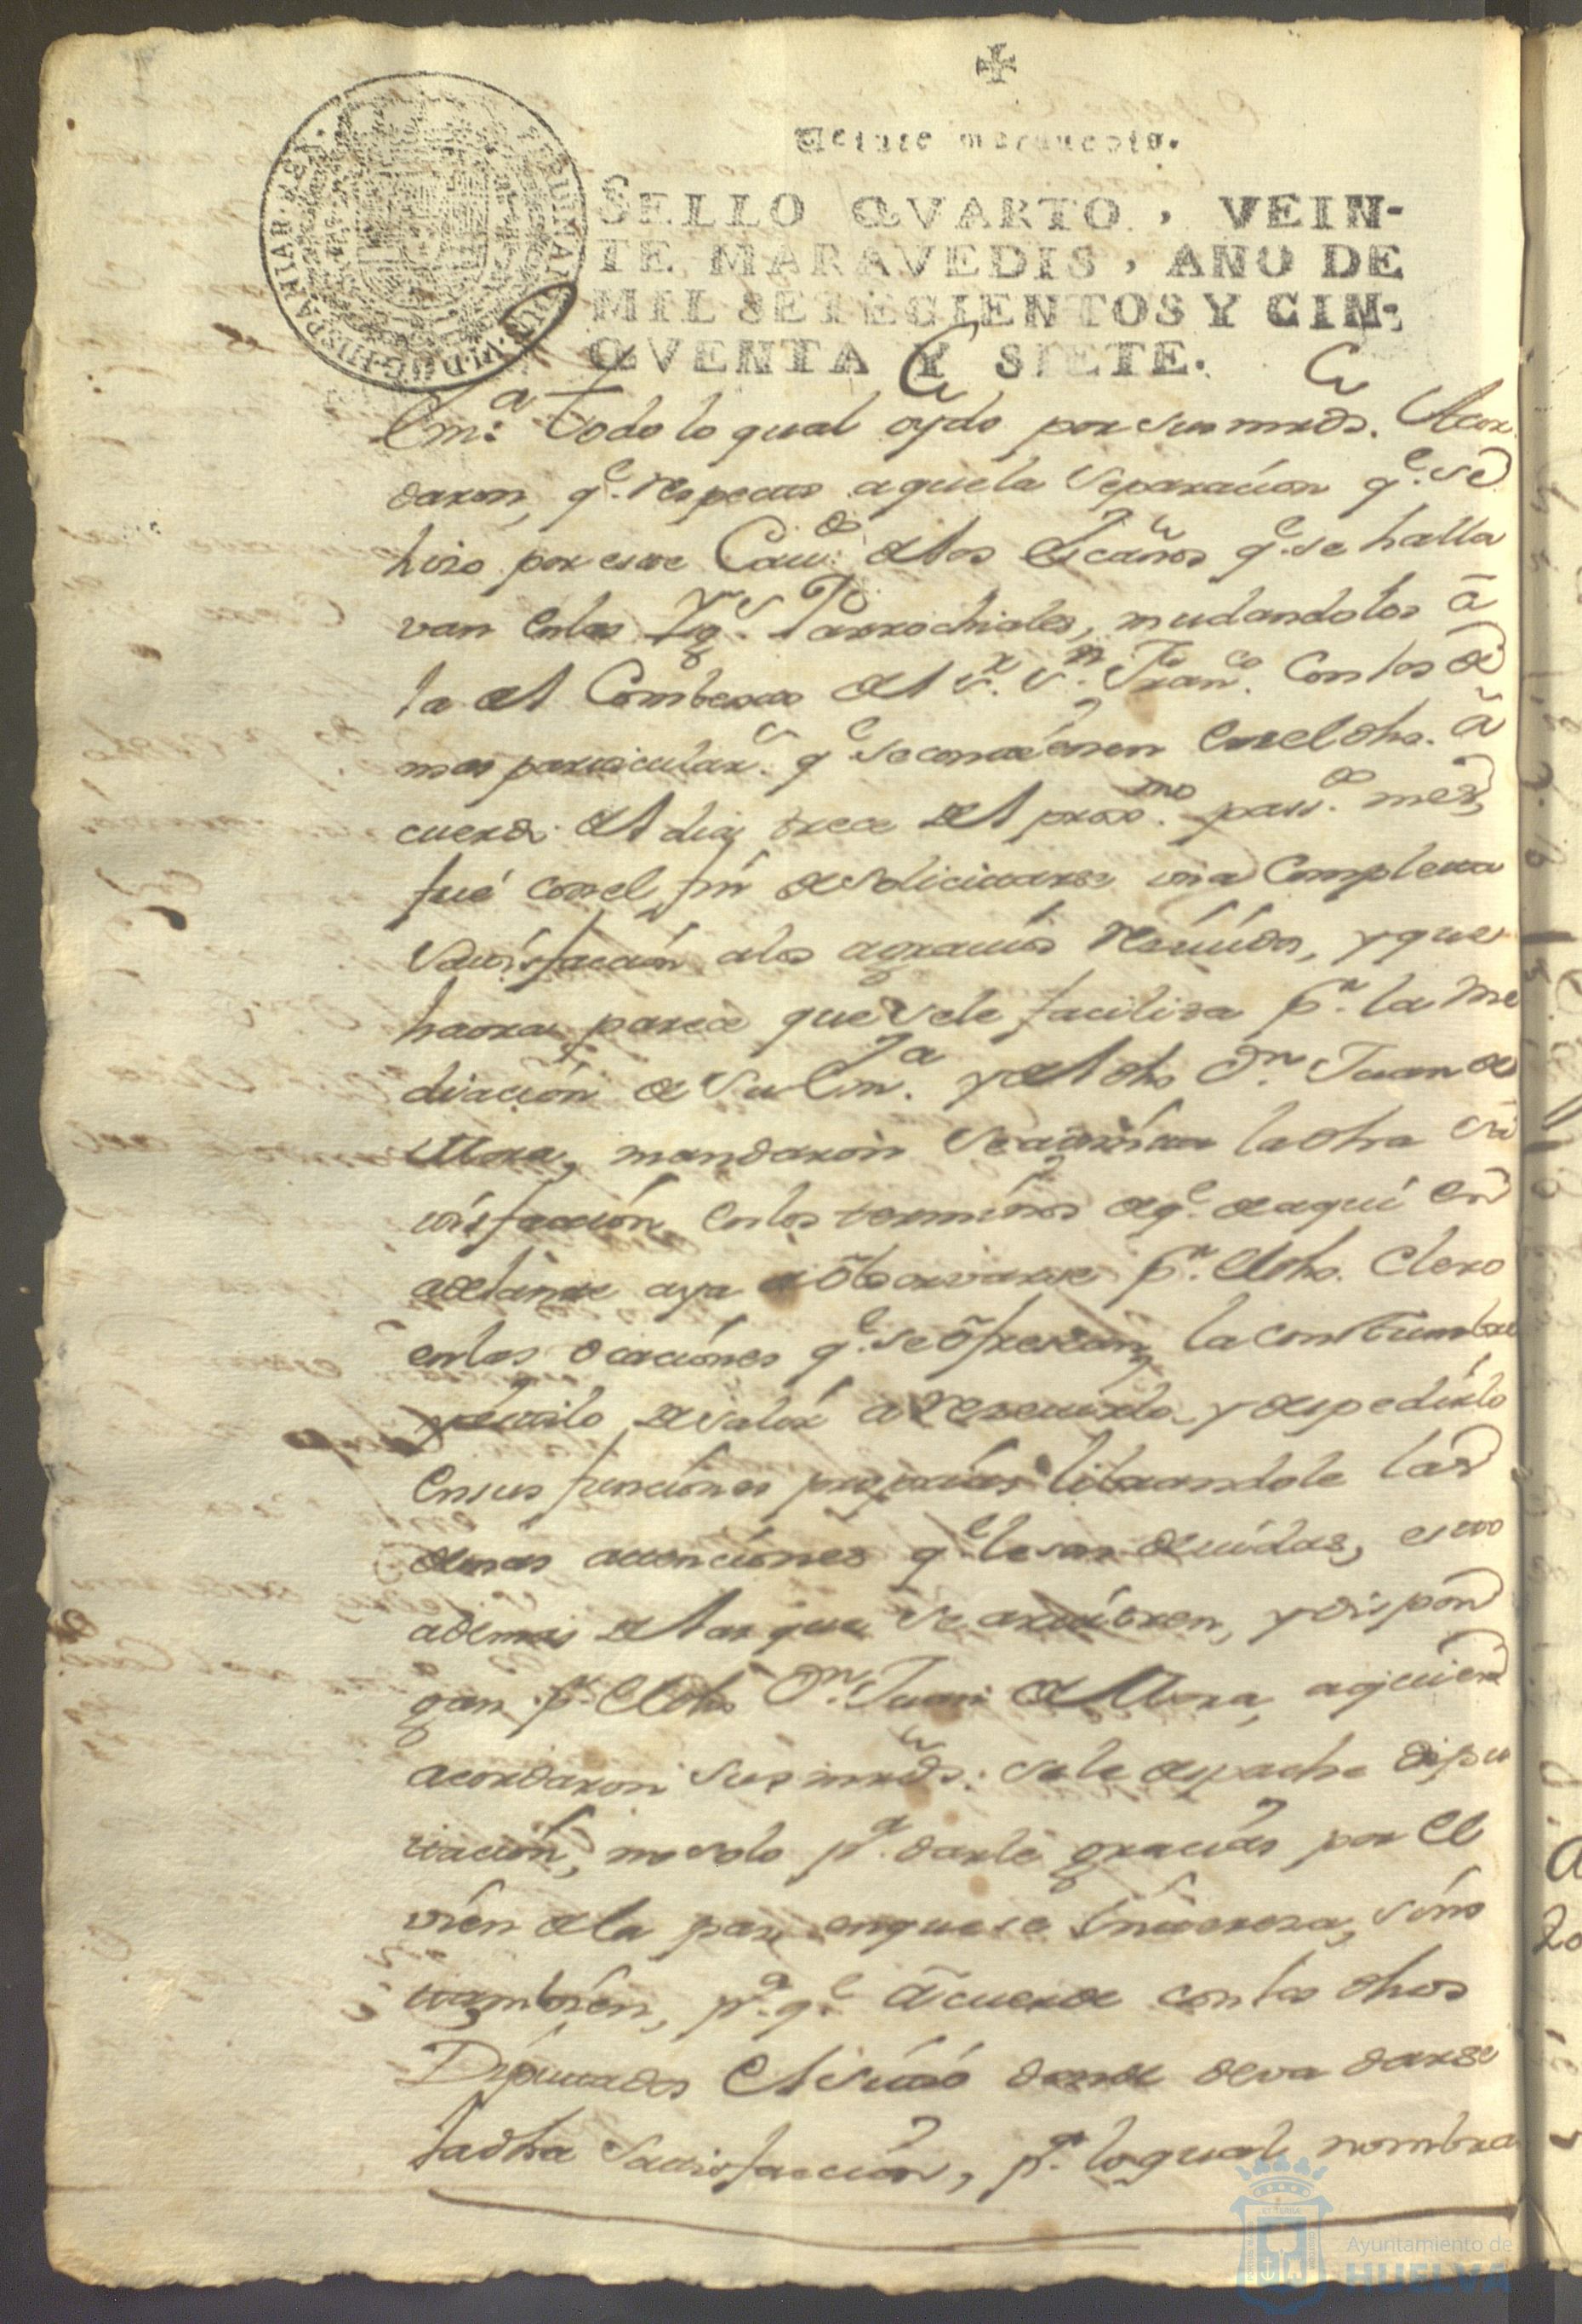 ✠
Veinte maravedis.
SELLO QVARTO, VEIN-
TE MARAVEDIS, AÑO DE
MIL SETECIENTOS Y CIN-
QVENTA Y SIETE.
FERDINANDUS·VI·D·G·HISPANIAR·REX·
Em.ª todo lo qual oydo por sus mrds. Acor
daron, q.e respecto aquela separacion q.e se
hiso por este Cav.do de los Escaños q.e se halla
van en las Yg.s Parrochiales, mudandolos â
la del Combento del S.r S.n Fran.co Con los de
mas particular.s q.e se contienen en el dho. â
cuerdo del dia trece del prox.mo pass.do mes,
fué con el fin de solicitarse una Completa
Satisfaccion a los agravios resividos, y que
haora parece que se le facilisa p.r la me
diacion de Su Em.ª y del dho D.n Juan de
Mora, mandaron se admita la dha sa
tisfaccion en los terminos de q.e de aqui en
adelante aya de observarse p.r el dho. Clero
en las ocaciones q.e se ôfrescan, la constumbre
y estilo de salir a resevirlo y despedirlo
en sus funciones proprias librandole las
demas atenciones q.e le son devidas, esto
ademas de las que se arvitren, y dispon
gan p.r el dho D.n Juan de Mora, aquien
acordaron sus mrds. se le despache dipu
tacion, no solo p.a darle gracias por el
vien de la paz en que se Interesa, sino
tambien, p.a q.e âcuerde con los dhos
Diputados el sitio donde deva darse
la dha Satisfaccion, p.a lo qual nombra
Ayuntamiento de
HUELVA